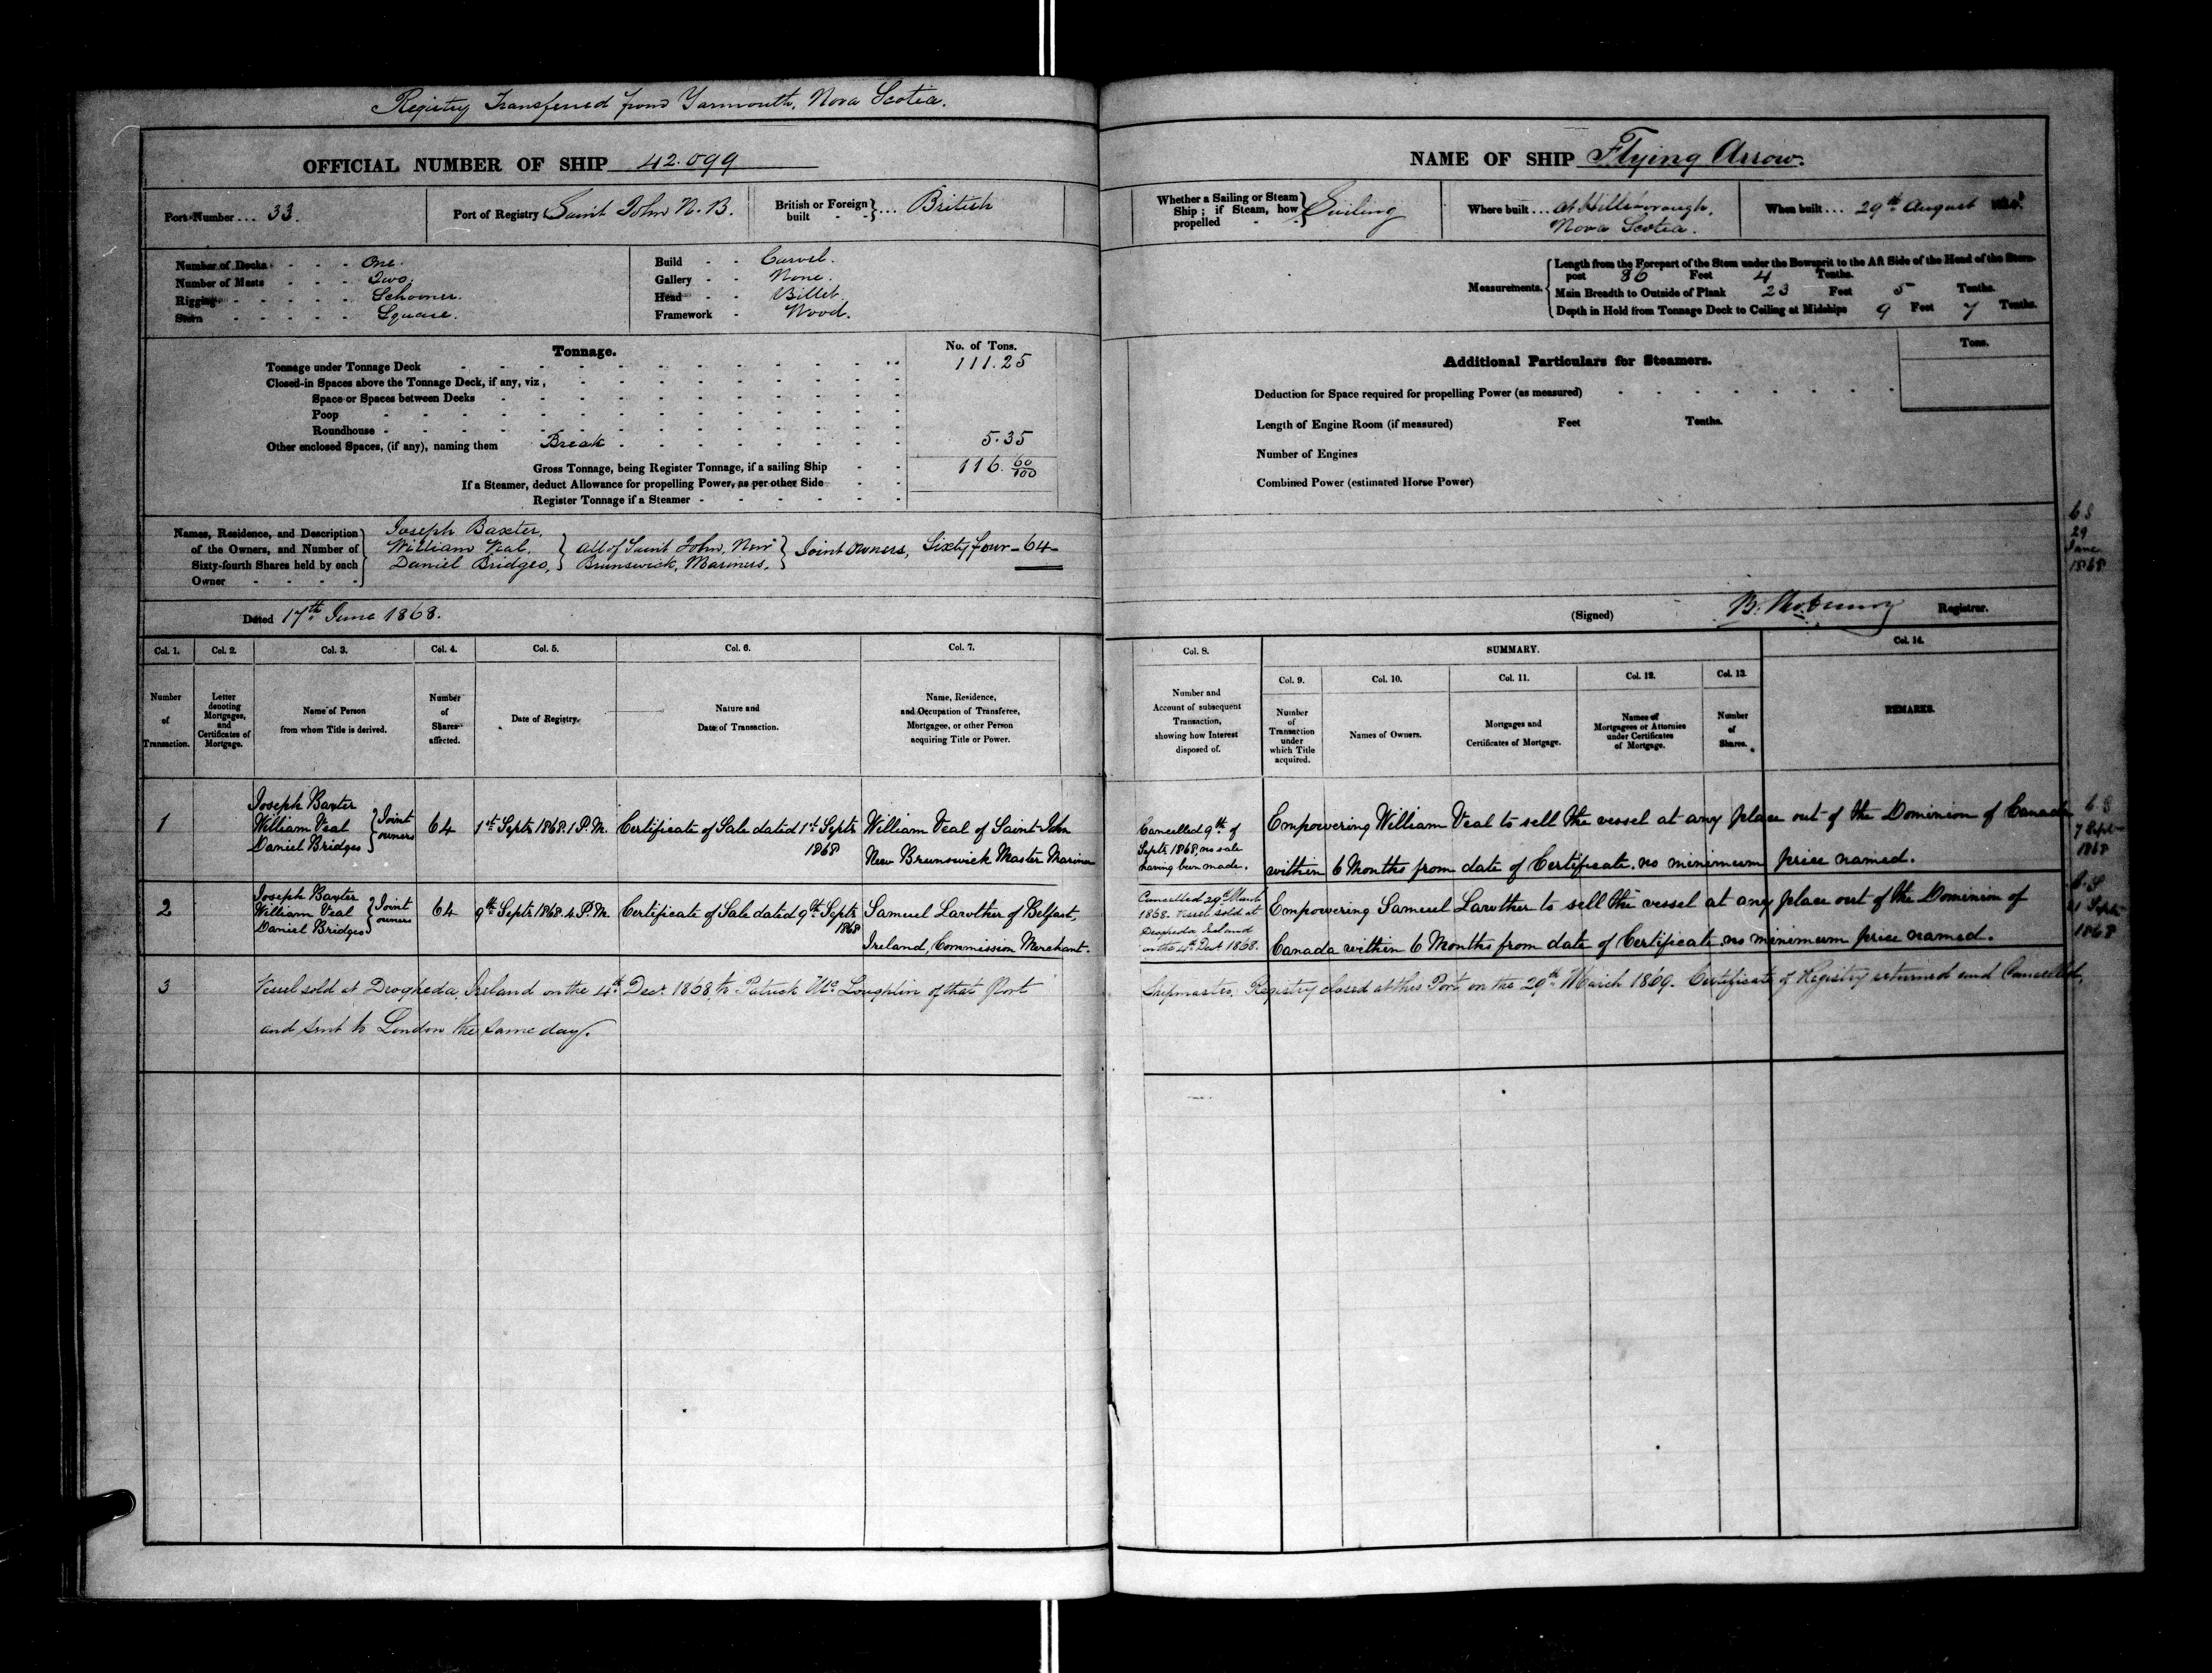 Registry Transferred from Yarmouth, Nova Scotia.
OFFICIAL NUMBER OF SHIP 42.099
Port Number ... 33.
Port of Registry Saint John N. B.
British or Foreign built - - } .... British
Number of Decks - - - One.
Number of Masts - - - Two.
Rigging - - - - - Schooner.
Stern - - - - - Square.
Build - - Carvel.
Gallery - - None.
Head - - Billet.
Framework - Wood.
Tonnage.
No. of Tons.
Tonnage under Tonnage Deck 111.25
Closed-in Spaces above the Tonnage Deck, if any, viz,
Space or Spaces between Decks
Poop
Roundhouse
Other enclosed Spaces, (if any), naming them Break 5.35
Gross Tonnage, being Register Tonnage, if a sailing Ship 116. 60/100
If a Steamer, deduct Allowance for propelling Power, as per other Side
Register Tonnage if a Steamer
Names, Residence, and Description of the Owners, and Number of Sixty-fourth Shares held by each Owner
Joseph Baxter,
William Veal,
Daniel Bridges, } all of Saint John, New Brunswick, Mariners, } Joint owners, Sixty four - 64 -
Dated 17th June 1868.
Col. 1. Col. 2. Col. 3. Col. 4. Col. 5. Col. 6. Col. 7.
Number of Transaction.
Letter denoting Mortgages, and Certificates of Mortgage.
Name of Person from whom Title is derived.
Number of Shares affected.
Date of Registry.
Nature and Date of Transaction.
Name, Residence, and Occupation of Transferee, Mortgagee, or other Person acquiring Title or Power.
1
Joseph Baxter
William Veal
Daniel Bridges } Joint owners
64
1st Septr 1868. 1 P.M.
Certificate of Sale dated 1st Septr 1868
William Veal of Saint John
New Brunswick Master Mariner
2
Joseph Baxter
William Veal
Daniel Bridges } Joint owners
64
9th Septr 1868. 4 P.M.
Certificate of Sale dated 9th Septr 1868
Samuel Lawther of Belfast,
Ireland, Commission Merchant.
3
Vessel sold at Drogheda, Ireland on the 4th Decr 1868, to Patrick McLoughlin of that Port
and sent to London the same day.
NAME OF SHIP Flying Arrow.
Whether a Sailing or Steam Ship; if Steam, how propelled - - } Sailing
Where built ... at Hillsborough,
Nova Scotia.
When built ... 29th August
Measurements.
Length from the Forepart of the Stem under the Bowsprit to the Aft Side of the Head of the Stern-
post 86 Feet 4 Tenths.
Main Breadth to Outside of Plank 23 Feet 5 Tenths.
Depth in Hold from Tonnage Deck to Ceiling at Midships 9 Feet 7 Tenths.
Additional Particulars for Steamers.
Tons.
Deduction for Space required for propelling Power (as measured)
Length of Engine Room (if measured) Feet Tenths.
Number of Engines
Combined Power (estimated Horse Power)
29
June
1868
(Signed) Registrar.
Col. 8. SUMMARY. Col. 14.
Col. 9. Col. 10. Col. 11. Col. 12. Col. 13.
Number and Account of subsequent Transaction, showing how Interest disposed of.
Number of Transaction under which Title acquired.
Names of Owners.
Mortgages and Certificates of Mortgage.
Names of Mortgagees or Attornies under Certificates of Mortgage.
Number of Shares.
REMARKS.
Cancelled 9th of
Septr 1868, no sale
having been made.
Empowering William Veal to sell the vessel at any place out of the Dominion of Canada
within 6 Months from date of Certificate. no minimum price named.
7 Sept
1868
Cancelled 29th March
1868. Vessel sold at
Drogheda Ireland
on the 4th Decr 1868.
Empowering Samuel Lawther to sell the vessel at any place out of the Dominion of
Canada within 6 Months from date of Certificate. no minimum price named.
21 Sept
1868
Shipmaster, Registry closed at this Port on the 29th March 1869. Certificate of Registry returned and Cancelled,